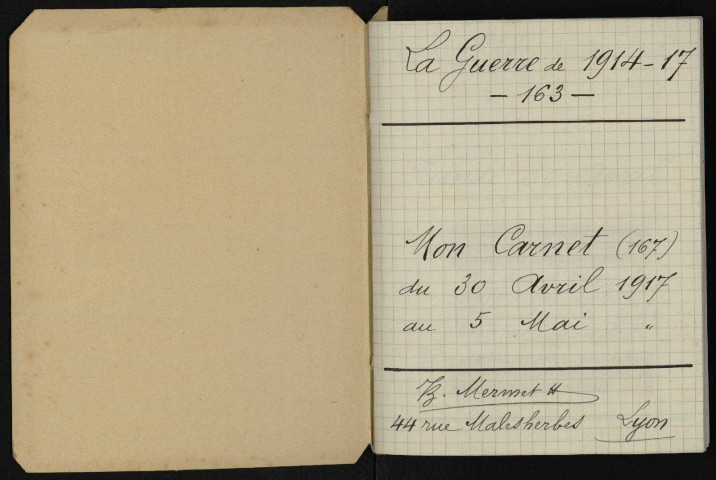 La Guerre de 1914-17
- 163 -
Mon Carnet (167)
du 30 Avril 1917
au 5 Mai "
B. Mermet
44 rue Malesherbes Lyon